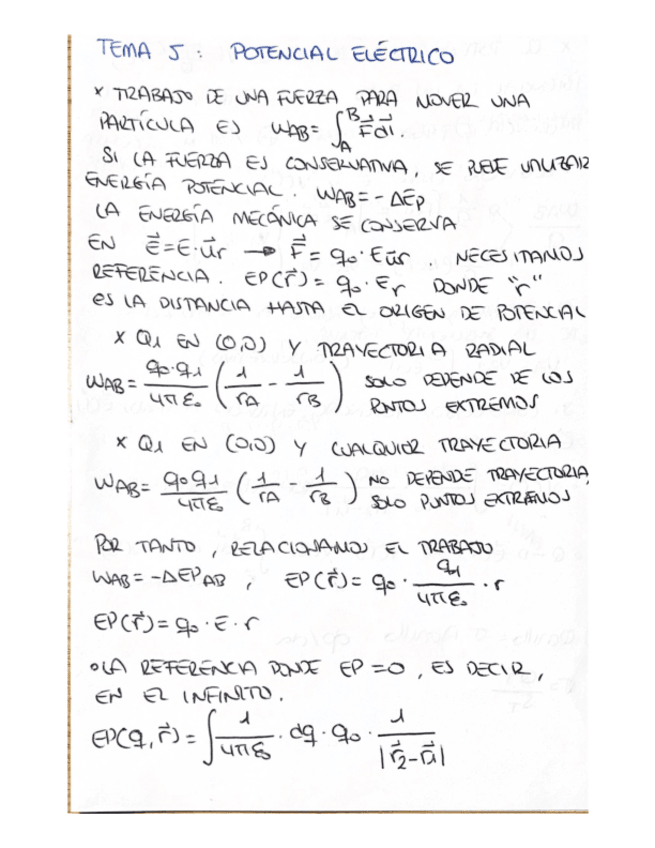 TEMA 5: POTENCIAL ELÉCTRICO
x TRABAJO DE UNA FUERZA PARA MOVER UNA
PARTÍCULA ES W_AB = ∫_A^B F⃗ dl⃗.
SI LA FUERZA ES CONSERVATIVA, SE PUEDE UTILIZAR
ENERGÍA POTENCIAL. W_AB = -ΔEp
LA ENERGÍA MECÁNICA SE CONSERVA
EN E⃗ = E·u⃗r → F⃗ = q₀·E u⃗r. NECESITAMOS
REFERENCIA. EP(r⃗) = q₀·E_r DONDE "r"
ES LA DISTANCIA HASTA EL ORIGEN DE POTENCIAL
x Q1 EN (0,0) Y TRAYECTORIA RADIAL
W_AB = q₀·q₁/4πε₀ (1/rA - 1/rB) SOLO DEPENDE DE LOS
PUNTOS EXTREMOS
x Q1 EN (0,0) Y CUALQUIER TRAYECTORIA
W_AB = q₀q₁/4πε₀ (1/rA - 1/rB) NO DEPENDE TRAYECTORIA,
SOLO PUNTOS EXTREMOS
POR TANTO, RELACIONAMOS EL TRABAJO
W_AB = -ΔEP_AB, EP(r⃗) = q₀ · q₁/4πε₀ · r
EP(r⃗) = q₀·E·r
•LA REFERENCIA DONDE EP=0, ES DECIR,
EN EL INFINITO.
EP(q, r⃗) = ∫ 1/4πε₀ · dq · q₀ · 1/|r⃗2 - r⃗1|